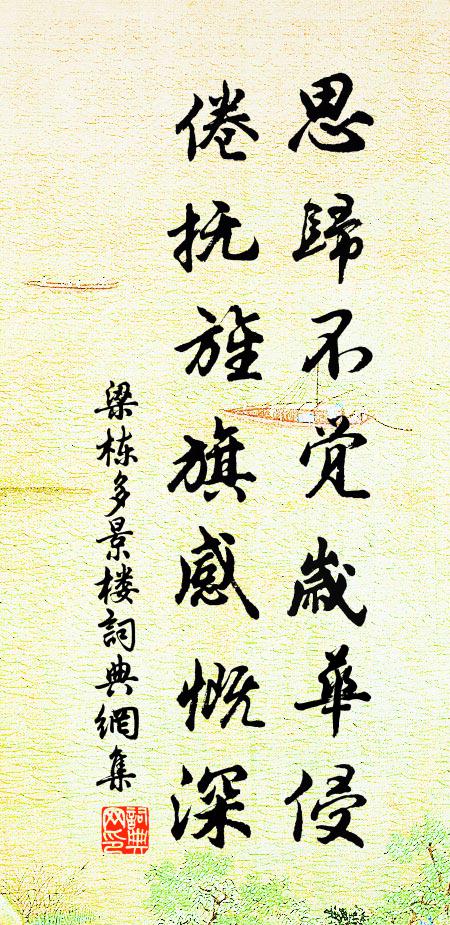 思歸不觉歲華侵
倦抚旌旗感慨深
梁栋多景楼詞典網集
詞典网印